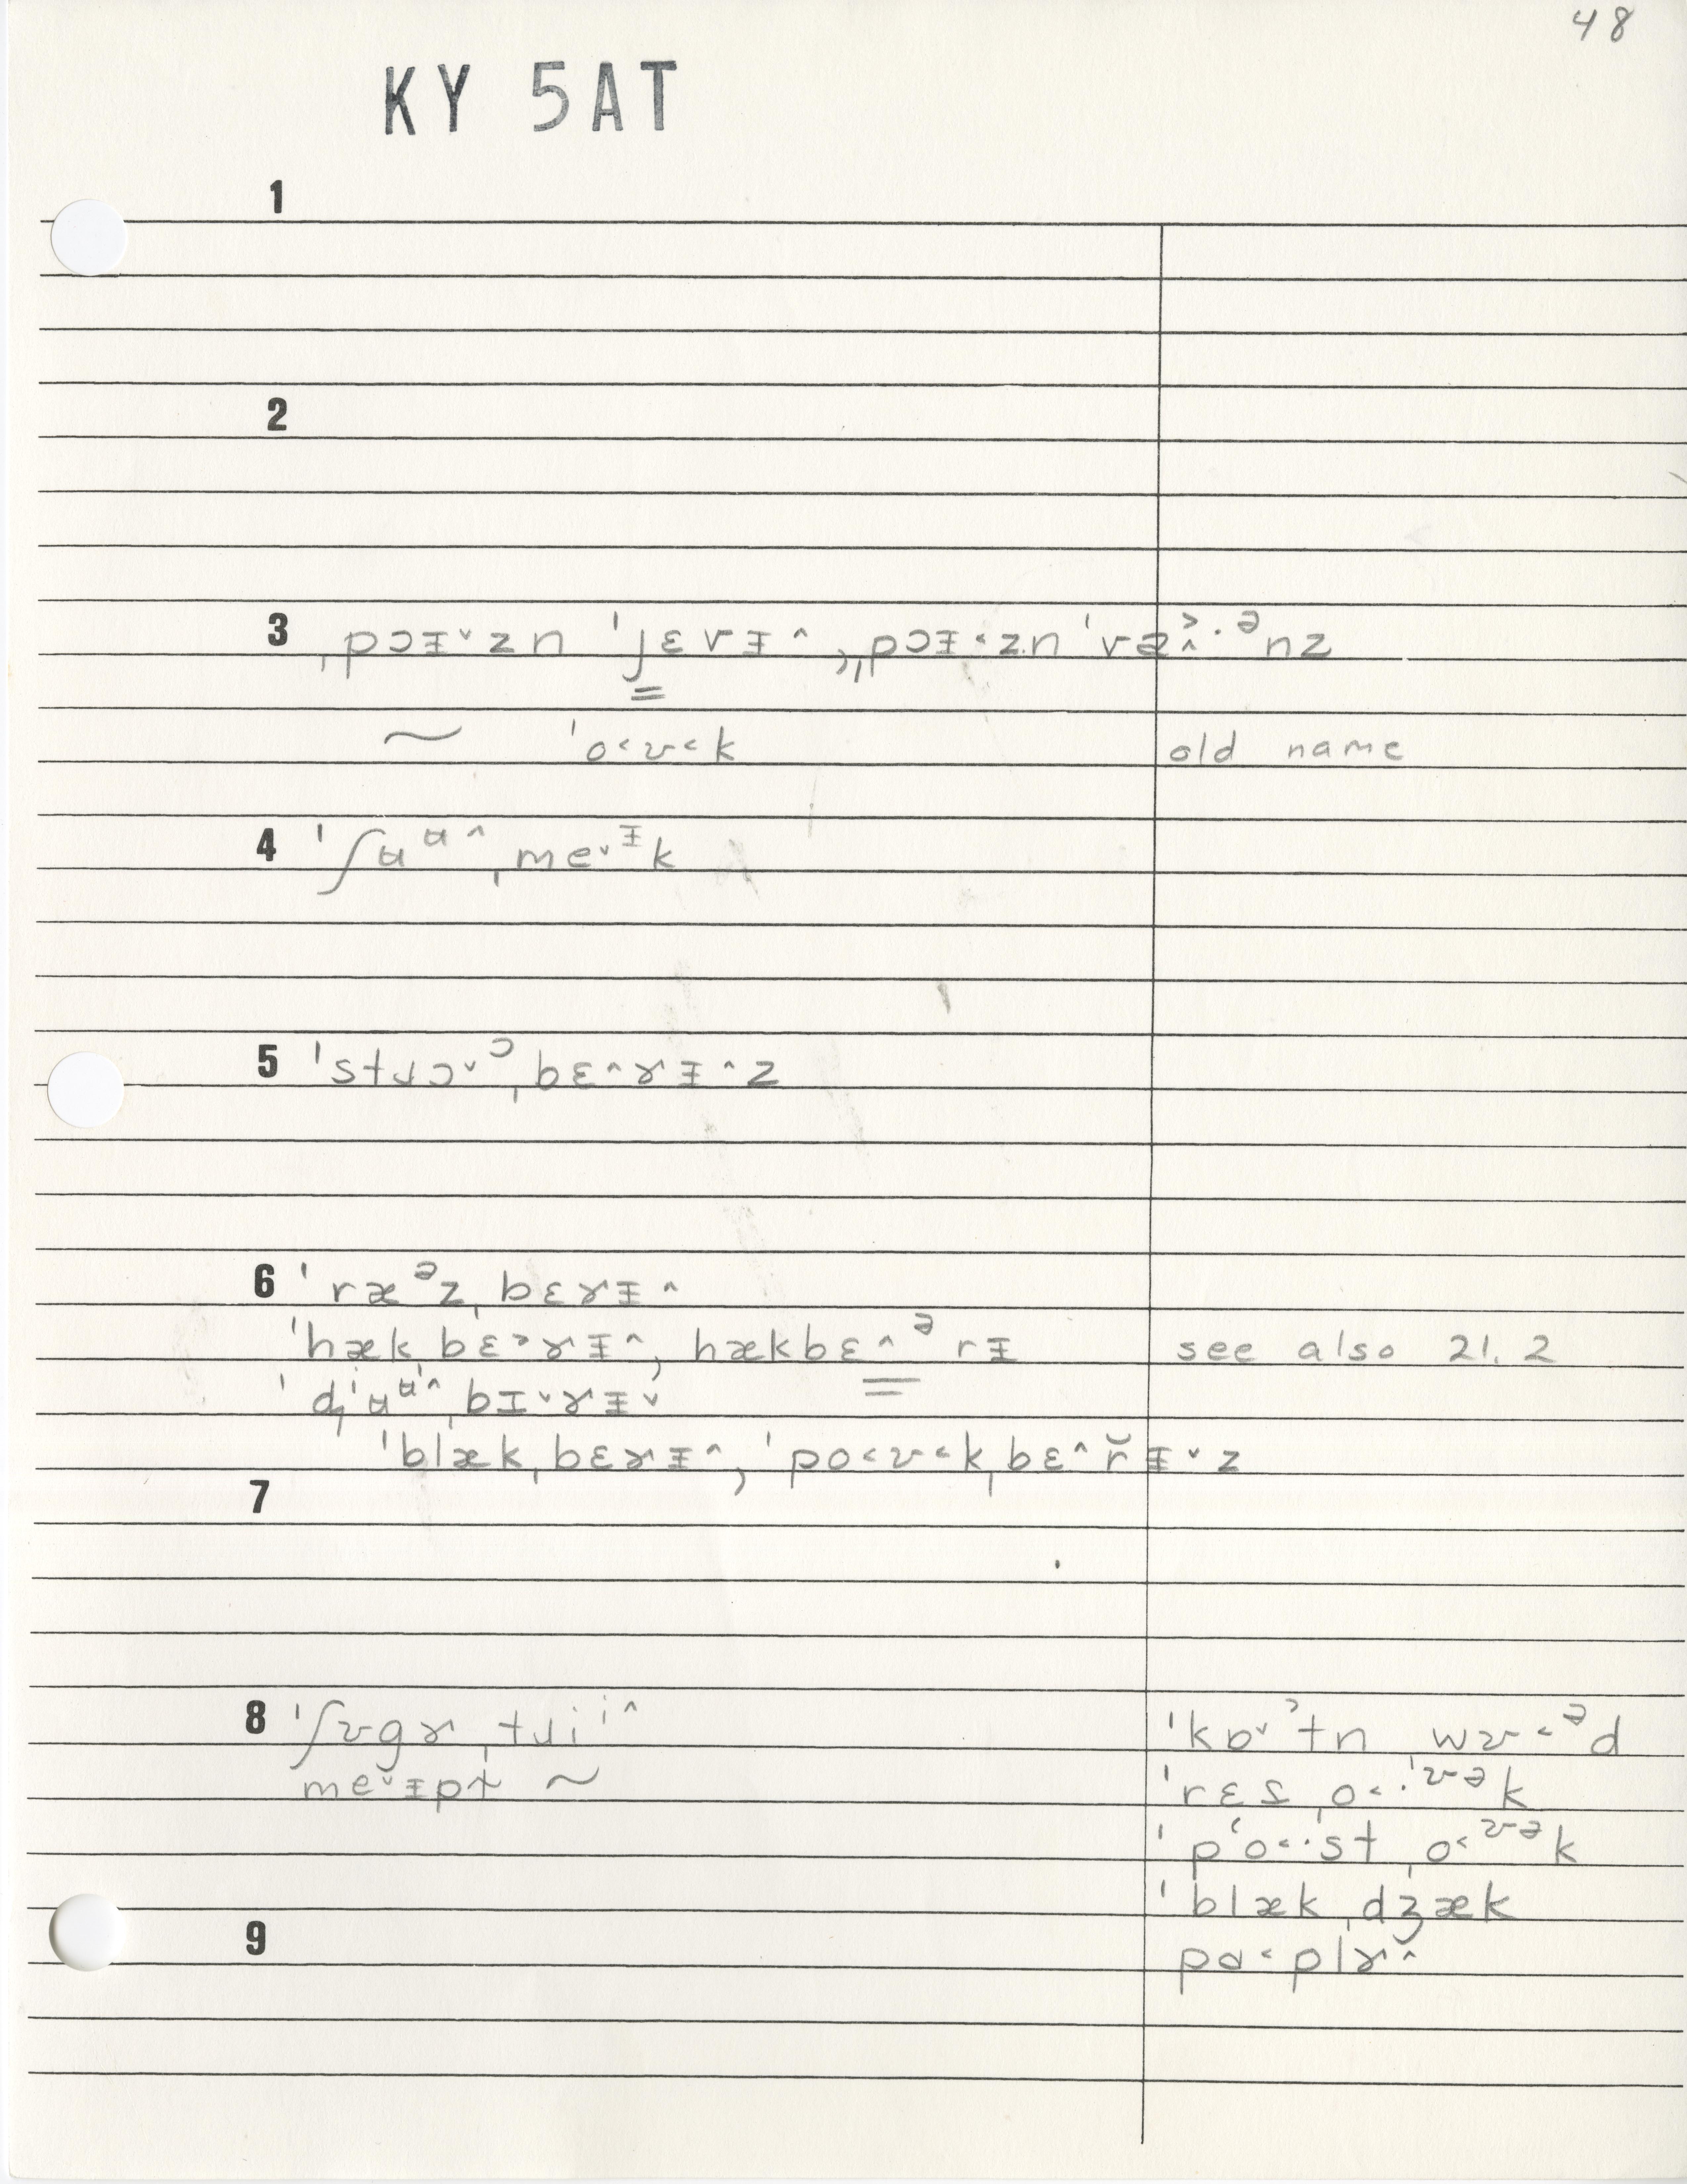 48
KY 5AT
1
2
3 ˌpɔɪ˅zn ˈʃɛvɪ˄, ˌˌpɔɪ˂zn ˈvæ̂˃·ᵊnz
~ ˈo˂ʊ˂k old name
4 ˈʃʉᵿ˄ˌme˅ᵻk
5 ˈstɹɔ˅ᵓˌbɛ˄ɚɪ˄z
6 ˈræᵊzˌbɛɚɪ˄
ˈhækˌbɛ˃ɚɪ˄, hækbɛ˄ᵊrɪ see also 21.2
ˈdʉᵿ˄ˌbɪ˅ɚɪ˅
ˈblækˌbɛɚɪ˄, ˈpo˂ʊ˂kˌbɛ˄r̆ɪ˅z
7
8 ˈʃʊgɚˌtɹiⁱ˄ ˈkɒ˅ˀtn wʊ˂ᵊd
me˅ɪpɫ ~ ˈrɛsˌo˂·ʊᵊk
ˈpʻo˂·stˌo˂ʊᵊk
ˈblækˌdʒæk
9 pɑ˂plɚ˄